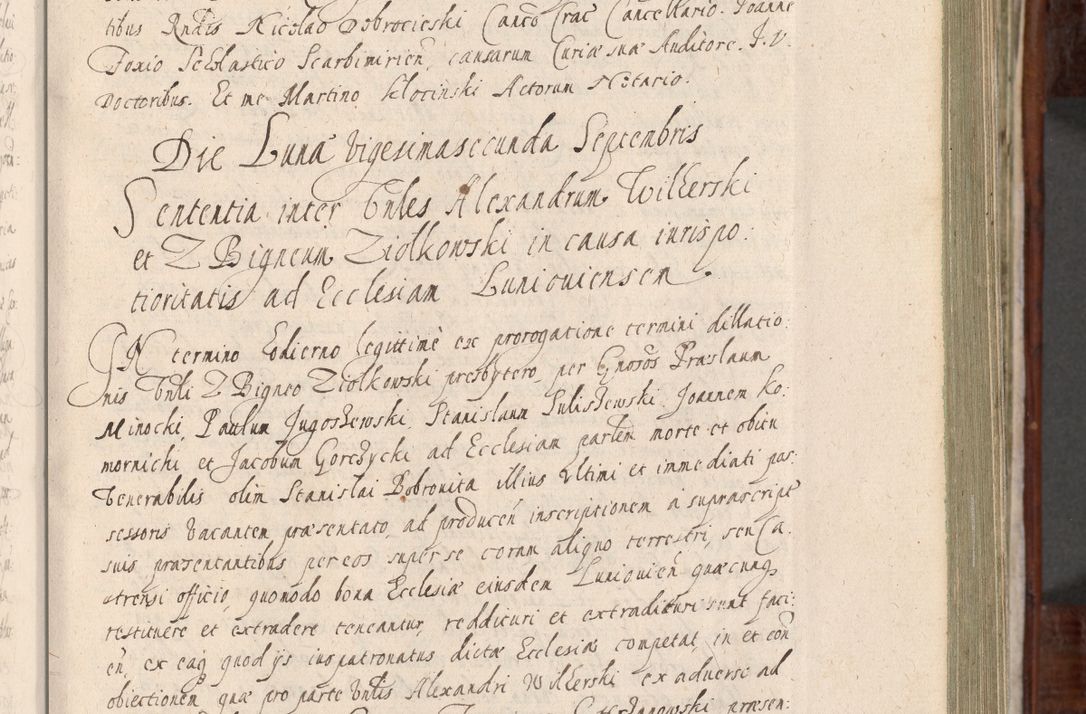 tibus Rndis Nicolao Dobrocieski Canco Crac Cancellario. Joanne
Foxio Scholastico Scarbimirien, causarum Curiæ suæ Auditore. J. V.
Doctoribus. Et me Martino Klocinski Actorum Notario.
Die Lunæ Vigesimasecunda Septenbris
Sententia inter Vnles Alexandrum Wilkerski
et ZBigneum Ziolkowski in causa iurispo:
tioritatis ad Ecclesiam Luniouiensem
IN termino hodierno legittimè ex prorogatione termini dillatio:
nis Vnli ZBigneo Ziolkowski presbytero, per Gnosos Praslaum
Minocki, Paulum Jugoszewski, Stanislaum Suliszewski, Joannem Ko:
mornicki et Jacobum Goreczycki ad Ecclesiam parlem morte et obitu
Venerabilis olim Stanislai Bobronita illius Vltimi et immediati pos:
sessoris Vacantem præsentato, ad producen inscriptionem à suprascript
suis præsentantibus per eos super se coram aliquo terrestri, seu Ca:
strensi officio, quomodo bona Ecclesiæ eiusdem Luniouien quæcunq
restituere et extradere teneantur, reddituri et extradituri sunt faci:
en, ex eaq quod ijs iuspatronatus dictæ Ecclesiæ competat, in et con
obiectionem quæ pro parte Vnlis Alexandri Wilkerski ex aduerso ad
præsen: